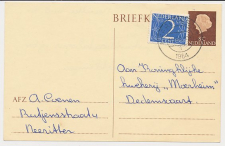 BRIEFKAART
NEDERLAND
2
1954
NEDERLAND
AFZ.
A. Coenen
Rutjensstraat
Neeritter
Aan Koninglijke
kweekerij "Moerheim"
Dedemsvaart